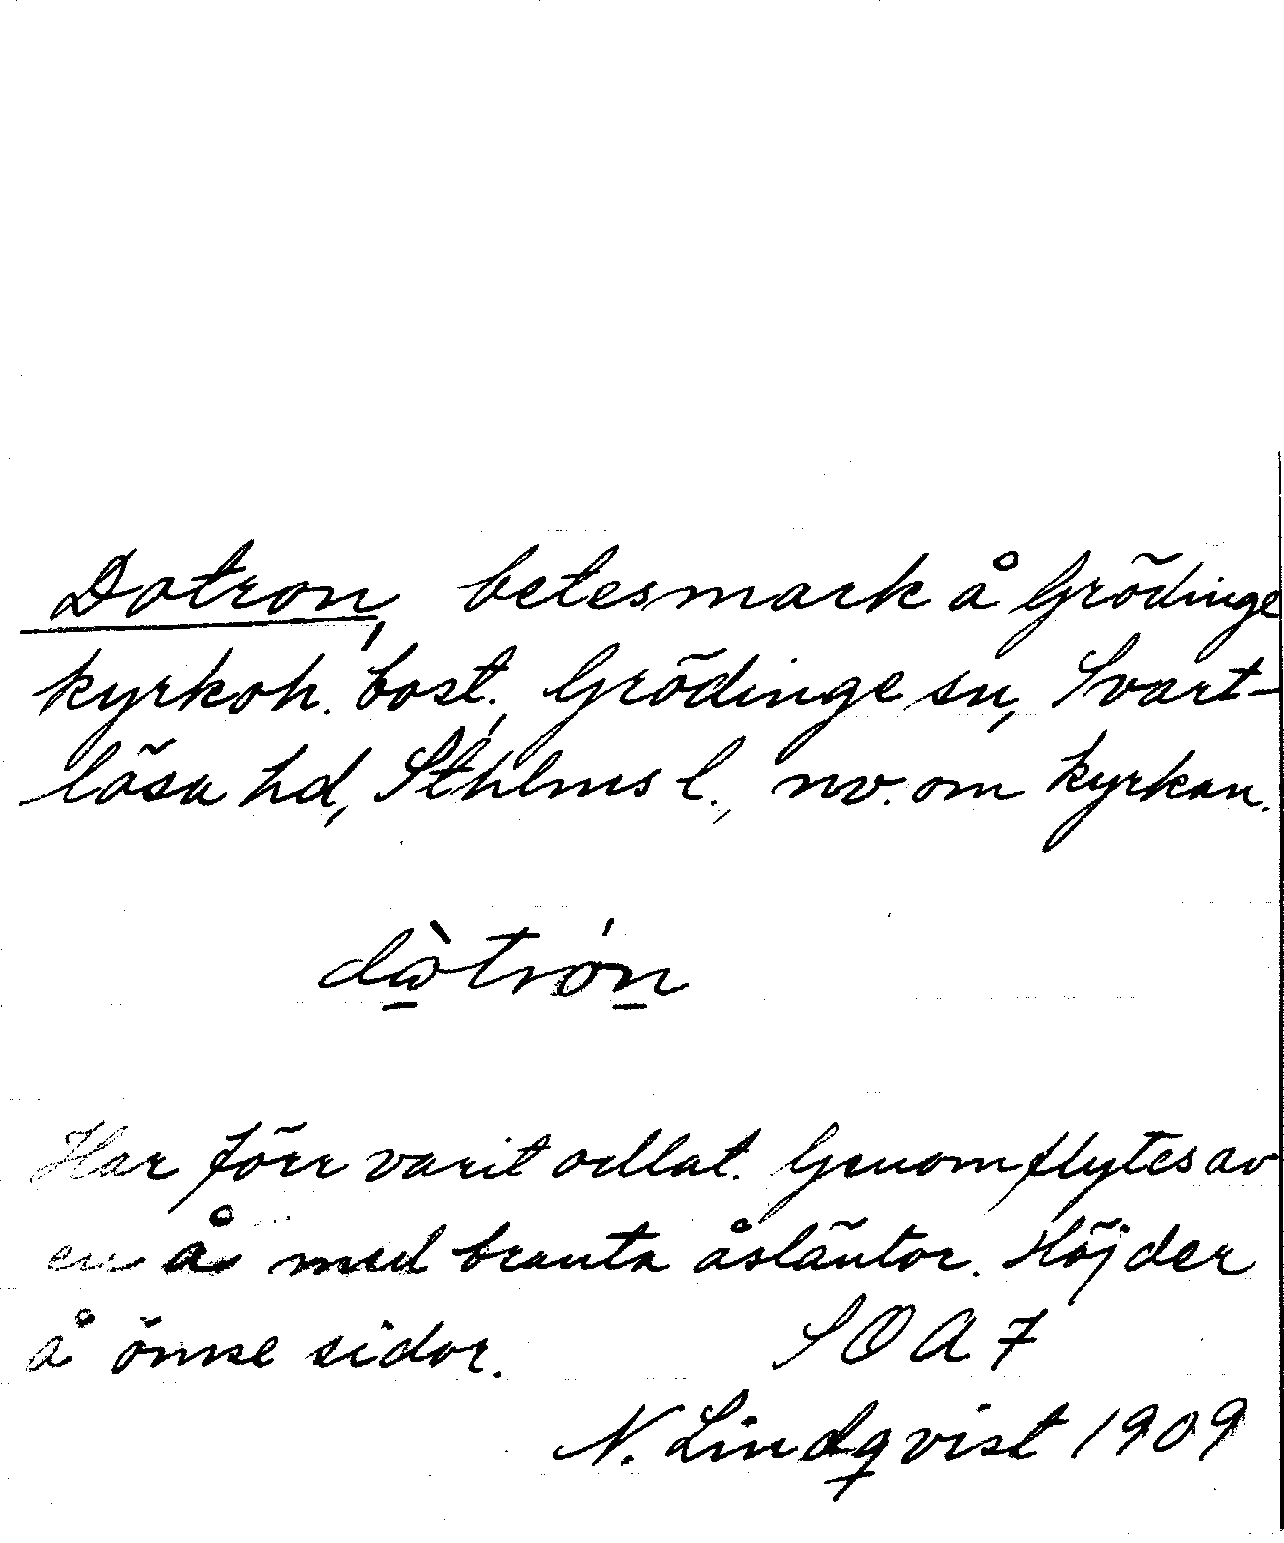 Dotron, betesmark å Grödinge
kyrkoh. bost., Grödinge sn, Svart-
lösa hd, Sthlms l., nv. om kyrkan.
dὼtrón
Har förr varit odlat. Genomflytes av
en å med branta åsläntor. Höjder
å ömse sidor. SOA 7
N. Lindqvist 1909